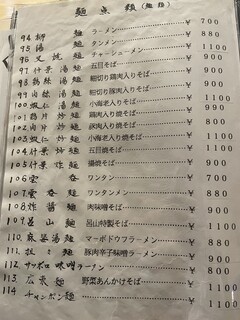 麺点類(麺類)
94. 柳麺 ラーメン ¥700
95 湯麺 タンメン ¥880
96 叉焼麺 チャーシューメン ¥1100
97 什景湯麺 五目そば ¥1100
98 鶏絲湯麺 細切り鶏肉入りそば ¥900
99 肉絲湯麺 細切り豚肉入りそば ¥900
100 蝦仁湯麺 小海老入りそば ¥1100
101 鶏片炒麺 鶏肉入り焼そば ¥900
102 肉片炒麺 豚肉入り焼そば ¥900
103 蝦仁炒麺 小海老入り焼そば ¥1100
104 什景炒麺 五目焼そば ¥1100
105 什景炸麺 揚焼そば ¥900
106 雲呑 ワンタン ¥700
107. 雲呑麺 ワンタンメン ¥880
108. 炸醤麺 肉味噌そば ¥900
109. 呂山麺 呂山特製そば ¥1100
110. 麻婆湯麺 マーボドウフラーメン ¥880
111. 担々麺 豚肉辛子味噌ラーメン ¥1100
112. サッポロ味噌ラーメン ¥880
113. 広東麺 野菜あんかけそば ¥1100
114 チャンポン麺 ¥1100